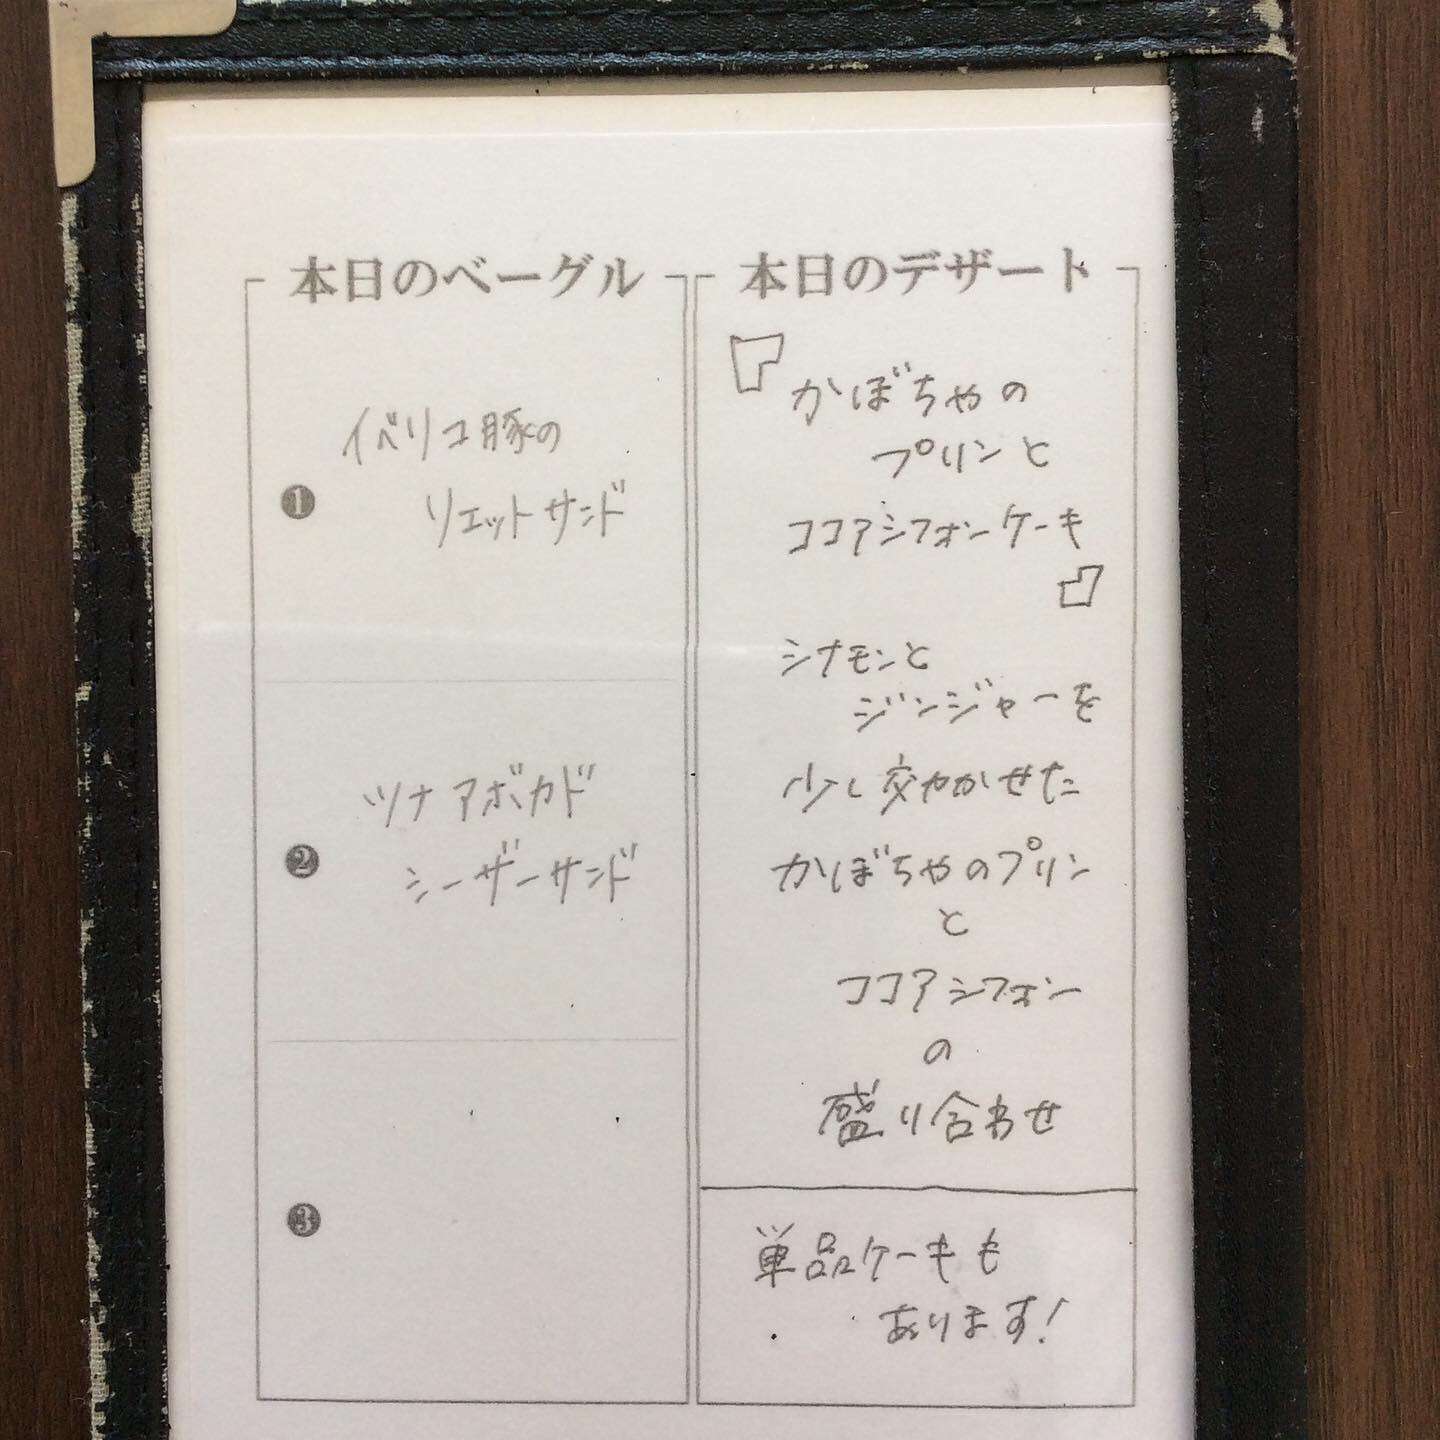 本日のベーグル
❶
イベリコ豚の
リエットサンド
❷
ツナアボカド
シーザーサンド
❸
本日のデザート
『かぼちゃの
プリンと
ココアシフォンケーキ
』
シナモンと
ジンジャーを
少し交やかせた
かぼちゃのプリン
と
ココアシフォン
の
盛り合わせ
単品ケーキも
あります!